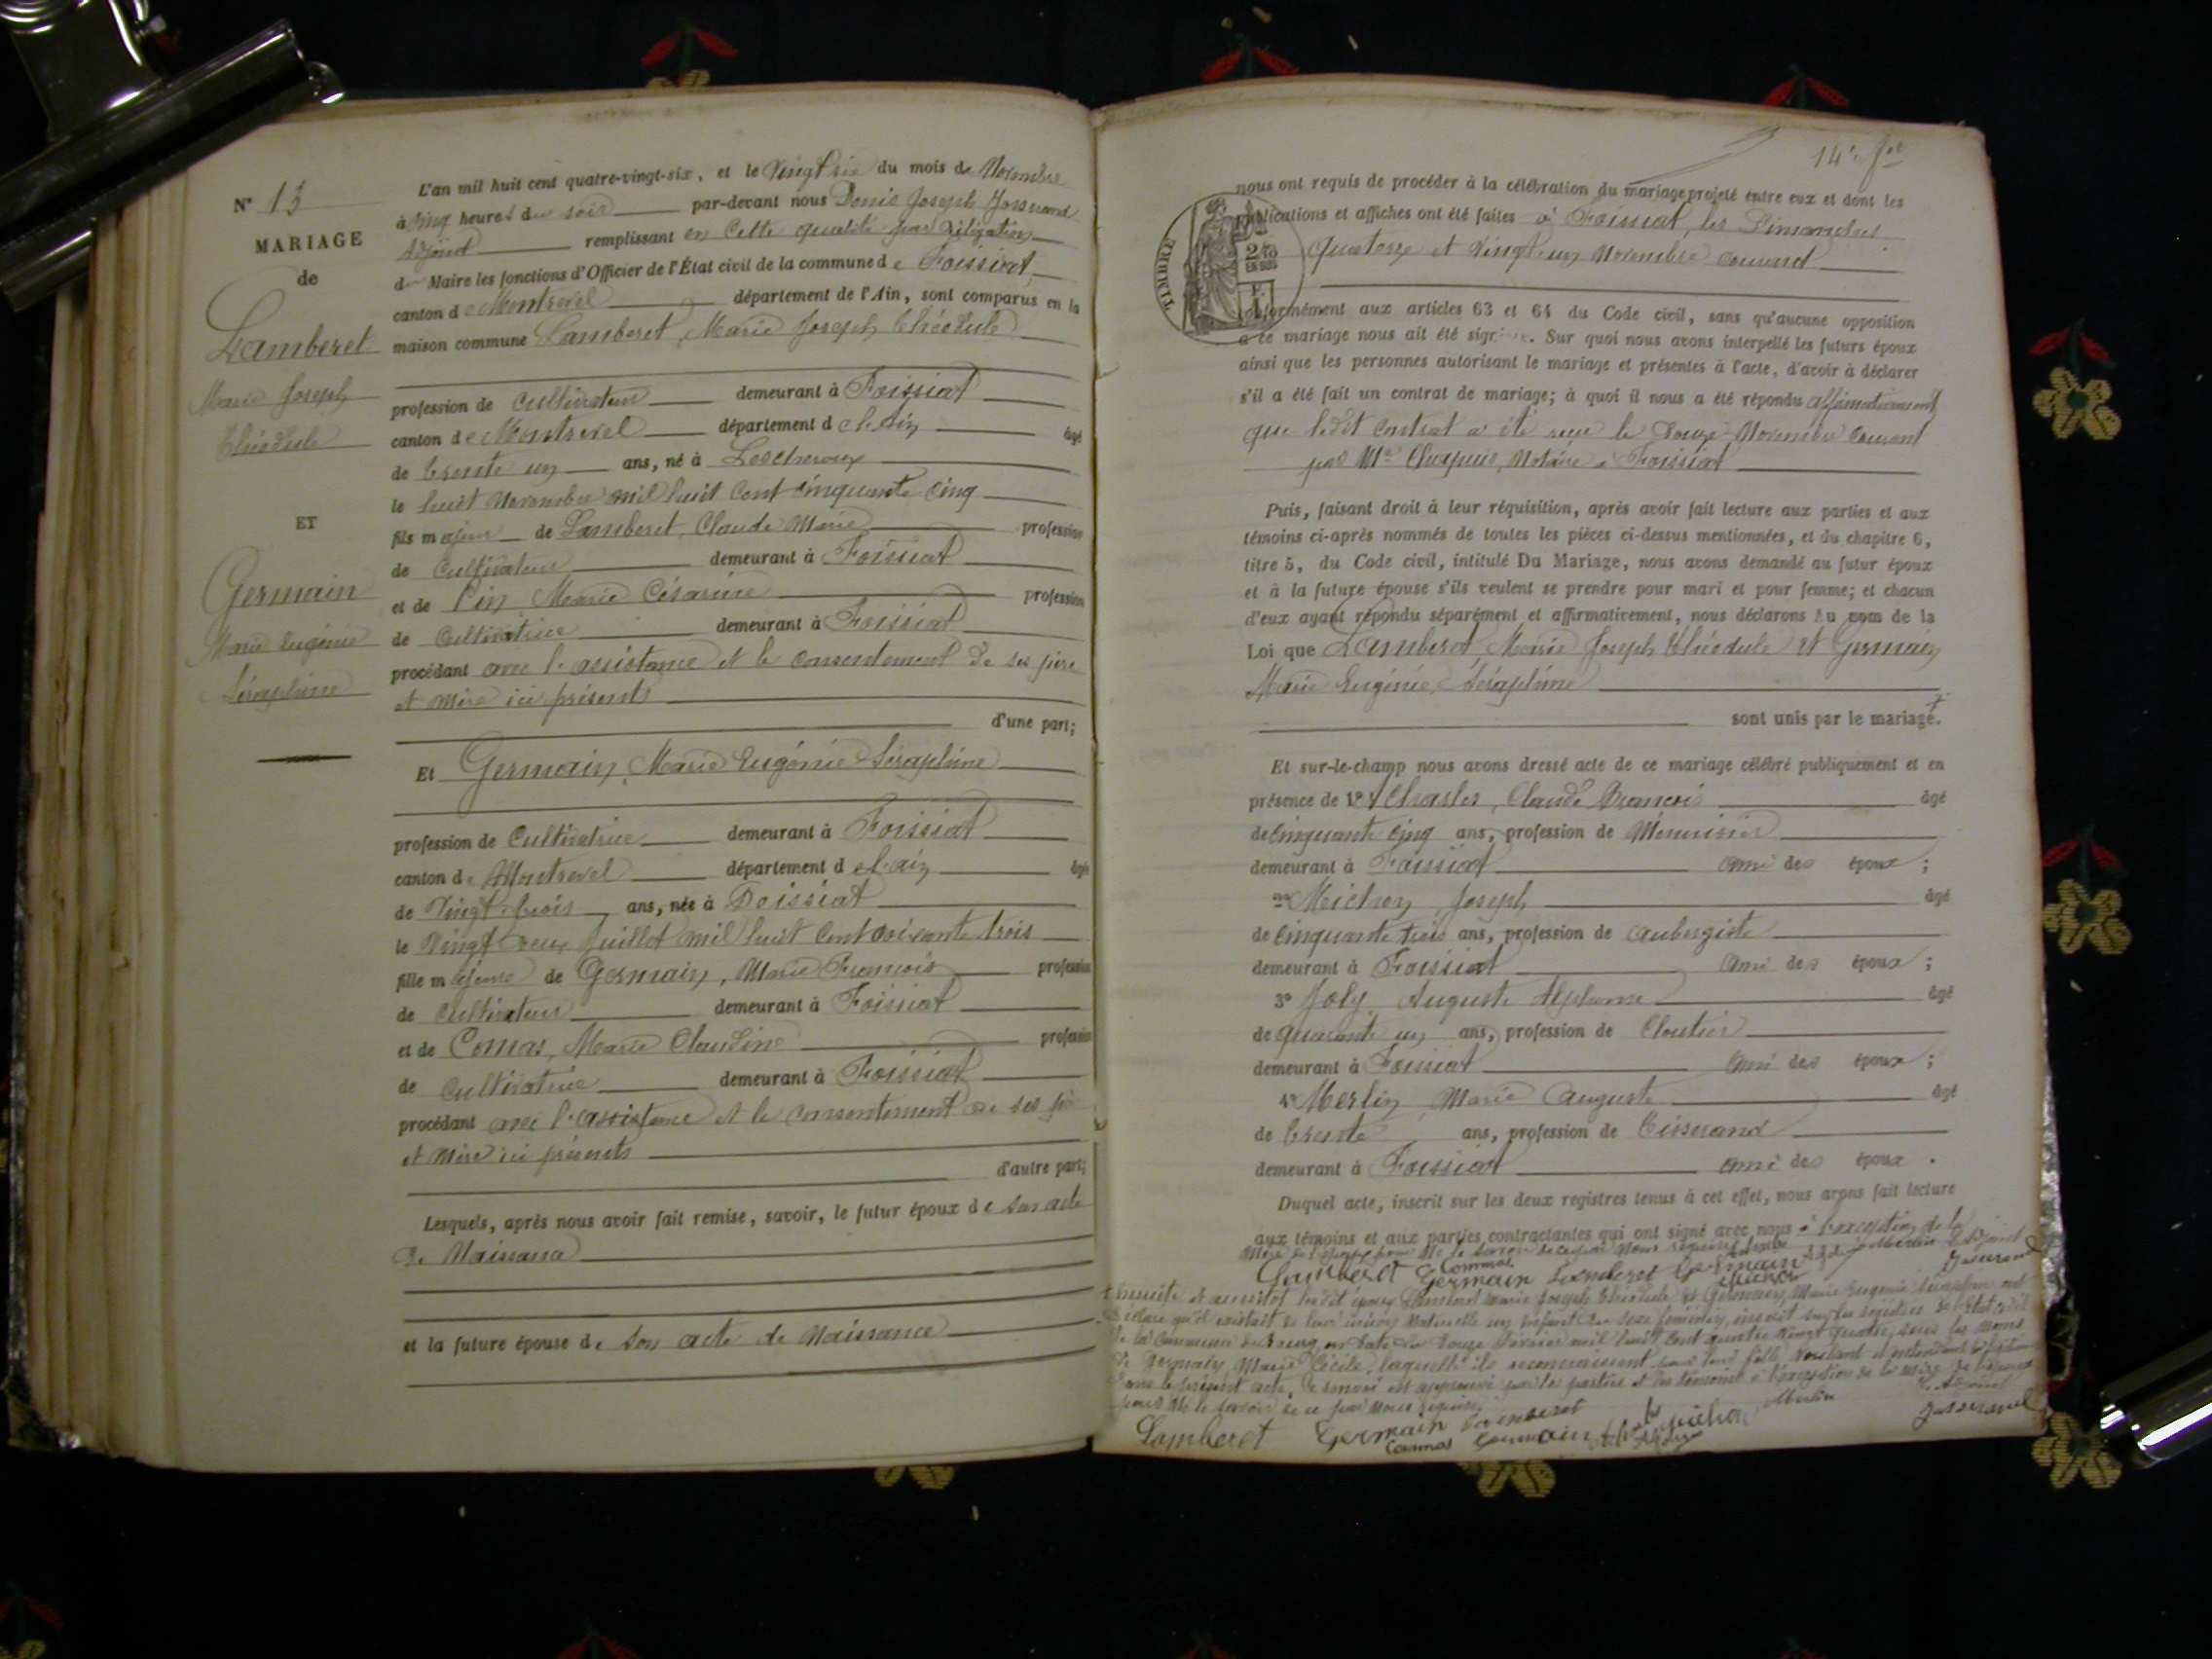 N° 13
MARIAGE
de
Lamberet
Marie Joseph
Théodule
ET
Germain
Marie Eugénie
Séraphine
L'an mil huit cent quatre-vingt-six, et le vingt six du mois de Novembre
à cinq heures du soir par-devant nous Denis Joseph Josserand
Adjoint remplissant en cette qualité par délégation
de Maire les fonctions d'Officier de l'État civil de la commune de Foissiat
canton de Montrevel département de l'Ain, sont comparus en la
maison commune Lamberet, Marie Joseph Théodule
profession de Cultivateur demeurant à Foissiat
canton de Montrevel département de l'Ain âgé
de trente un ans, né à Lescheroux
le huit Novembre mil huit cent cinquante cinq
fils majeur de Lamberet, Claude Marie profession
de Cultivateur demeurant à Foissiat
et de Pin, Marie Césarine profession
de Cultivatrice demeurant à Foissiat
procédant avec l'assistance et le consentement de ses père
et mère ici présents
d'une part;
Et Germain, Marie Eugénie Séraphine
profession de Cultivatrice demeurant à Foissiat
canton de Montrevel département de l'Ain âgée
de vingt trois ans, née à Foissiat
le vingt deux Juillet mil huit cent soixante trois
fille majeure de Germain, Marie François profession
de Cultivateur demeurant à Foissiat
et de Comas, Marie Claudine profession
de Cultivatrice demeurant à Foissiat
procédant avec l'assistance et le consentement de ses père
et mère ici présents
d'autre part;
Lesquels, après nous avoir fait remise, savoir, le futur époux de son acte
de Naissance
et la future épouse de son acte de Naissance
14e f et
TIMBRE
nous ont requis de procéder à la célébration du mariage projeté entre eux et dont les
publications et affiches ont été faites à Foissiat, les Dimanches
quatorze et vingt-un Novembre courant
conformément aux articles 63 et 64 du Code civil, sans qu'aucune opposition
à ce mariage nous ait été signifiée. Sur quoi nous avons interpellé les futurs époux
ainsi que les personnes autorisant le mariage et présentes à l'acte, d'avoir à déclarer
s'il a été fait un contrat de mariage; à quoi il nous a été répondu affirmativement
que ledit contrat a été reçu le douze Novembre courant
par Me Chapuis, Notaire à Foissiat
Puis, faisant droit à leur réquisition, après avoir fait lecture aux parties et aux
témoins ci-après nommés de toutes les pièces ci-dessus mentionnées, et du chapitre 6,
titre 5, du Code civil, intitulé Du Mariage, nous avons demandé au futur époux
et à la future épouse s'ils veulent se prendre pour mari et pour femme; et chacun
d'eux ayant répondu séparément et affirmativement, nous déclarons au nom de la
Loi que Lamberet, Marie Joseph Théodule et Germain
Marie Eugénie Séraphine
sont unis par le mariage.
Et sur-le-champ nous avons dressé acte de ce mariage célébré publiquement et en
présence de 1° Charles, Claude François âgé
de cinquante cinq ans, profession de Menuisier
demeurant à Foissiat ami des époux ;
2° Michon, Joseph âgé
de cinquante trois ans, profession de aubergiste
demeurant à Foissiat ami des époux ;
3° Joly, Auguste Alphonse âgé
de quarante un ans, profession de Cloutier
demeurant à Foissiat ami des époux ;
4° Merlin, Marie Auguste âgé
de trente ans, profession de Tisserand
demeurant à Foissiat ami des époux .
Duquel acte, inscrit sur les deux registres tenus à cet effet, nous avons fait lecture
aux témoins et aux parties contractantes qui ont signé avec nous à l'exception de la
mère de l'époux pour ne le savoir de ce par nous requise
Lamberet Germain Lamberet Germain Merlin L'adjoint
Commas Josserand
Ensuite et aussitôt lesdit époux Lamberet Marie Joseph Théodule et Germain Marie Eugénie Séraphine ont
déclaré qu'il existait de leur union naturelle un enfant du sexe féminin, inscrit sur les registres de l'état civil
de la commune de Bourg en date du douze Février mil huit cent quatre vingt quatre, sous les noms
de Germain Marie Cécile, laquelle ils reconnaissent pour leur fille voulant et entendant légitimer
par le présent acte. Ce renvoi est approuvé par les parties et les témoins à l'exception de la mère de l'époux
pour ne le savoir de ce par nous requise
Lamberet Germain Lamberet Merlin L'Adjoint
Commas Germain Michon Josserand